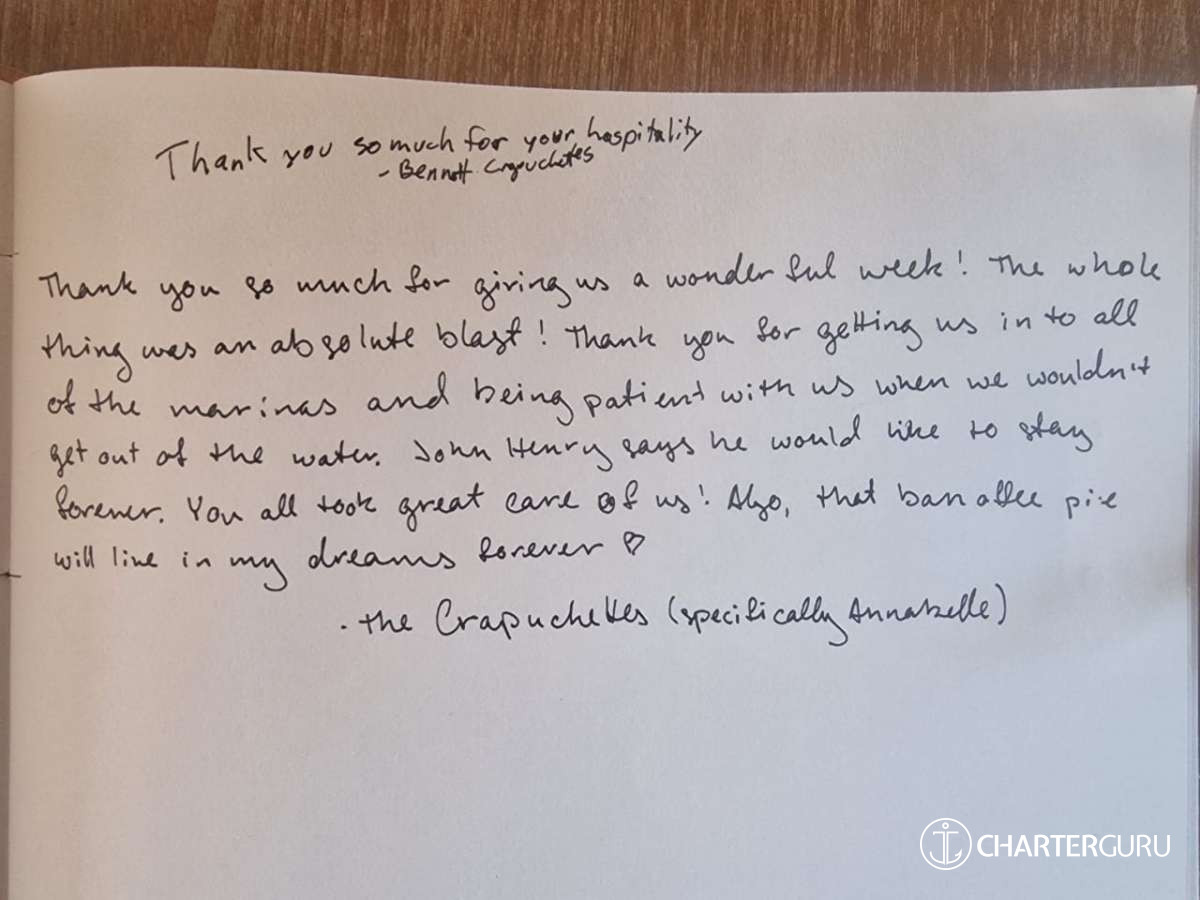 Thank you so much for your hospitality
- Bennett Crapuchettes
Thank you so much for giving us a wonderful week! The whole
thing was an absolute blast! Thank you for getting us in to all
of the marinas and being patient with us when we wouldn't
get out of the water. John Henry says he would like to stay
forever. You all took great care of us! Also, that banoffee pie
will live in my dreams forever ♡
- the Crapuchettes (specifically Annabelle)
CHARTERGURU